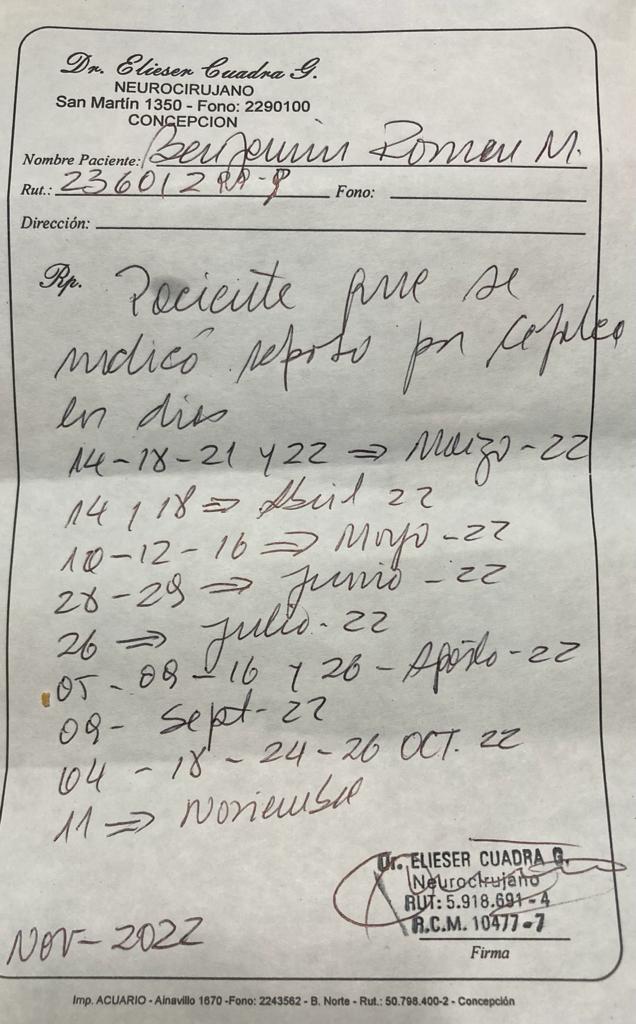 Dr. Elieser Cuadra G.
NEUROCIRUJANO
San Martín 1350 - Fono: 2290100
CONCEPCION
Nombre Paciente: Benjamin Roman M.
Rut.: 236012 Fono:
Dirección:
Rp. Paciente que se
indicó reposo por cefalea
en dias
14-18-21 y 22 => Marzo-22
14 y 18 => Abril 22
10-12-16 => Mayo-22
28-29 => Junio-22
26 => Julio-22
05-09-16 y 26-Agosto-22
09- Sept-22
04-18-24-26 OCT. 22
11 => Noviembre
Dr. ELIESER CUADRA G.
Neurocirujano
RUT: 5.918.691-4
R.C.M. 10477-7
NOV-2022
Firma
Imp. ACUARIO - Ainavillo 1670 -Fono: 2243562 - B. Norte - Rut.: 50.798.400-2 - Concepción